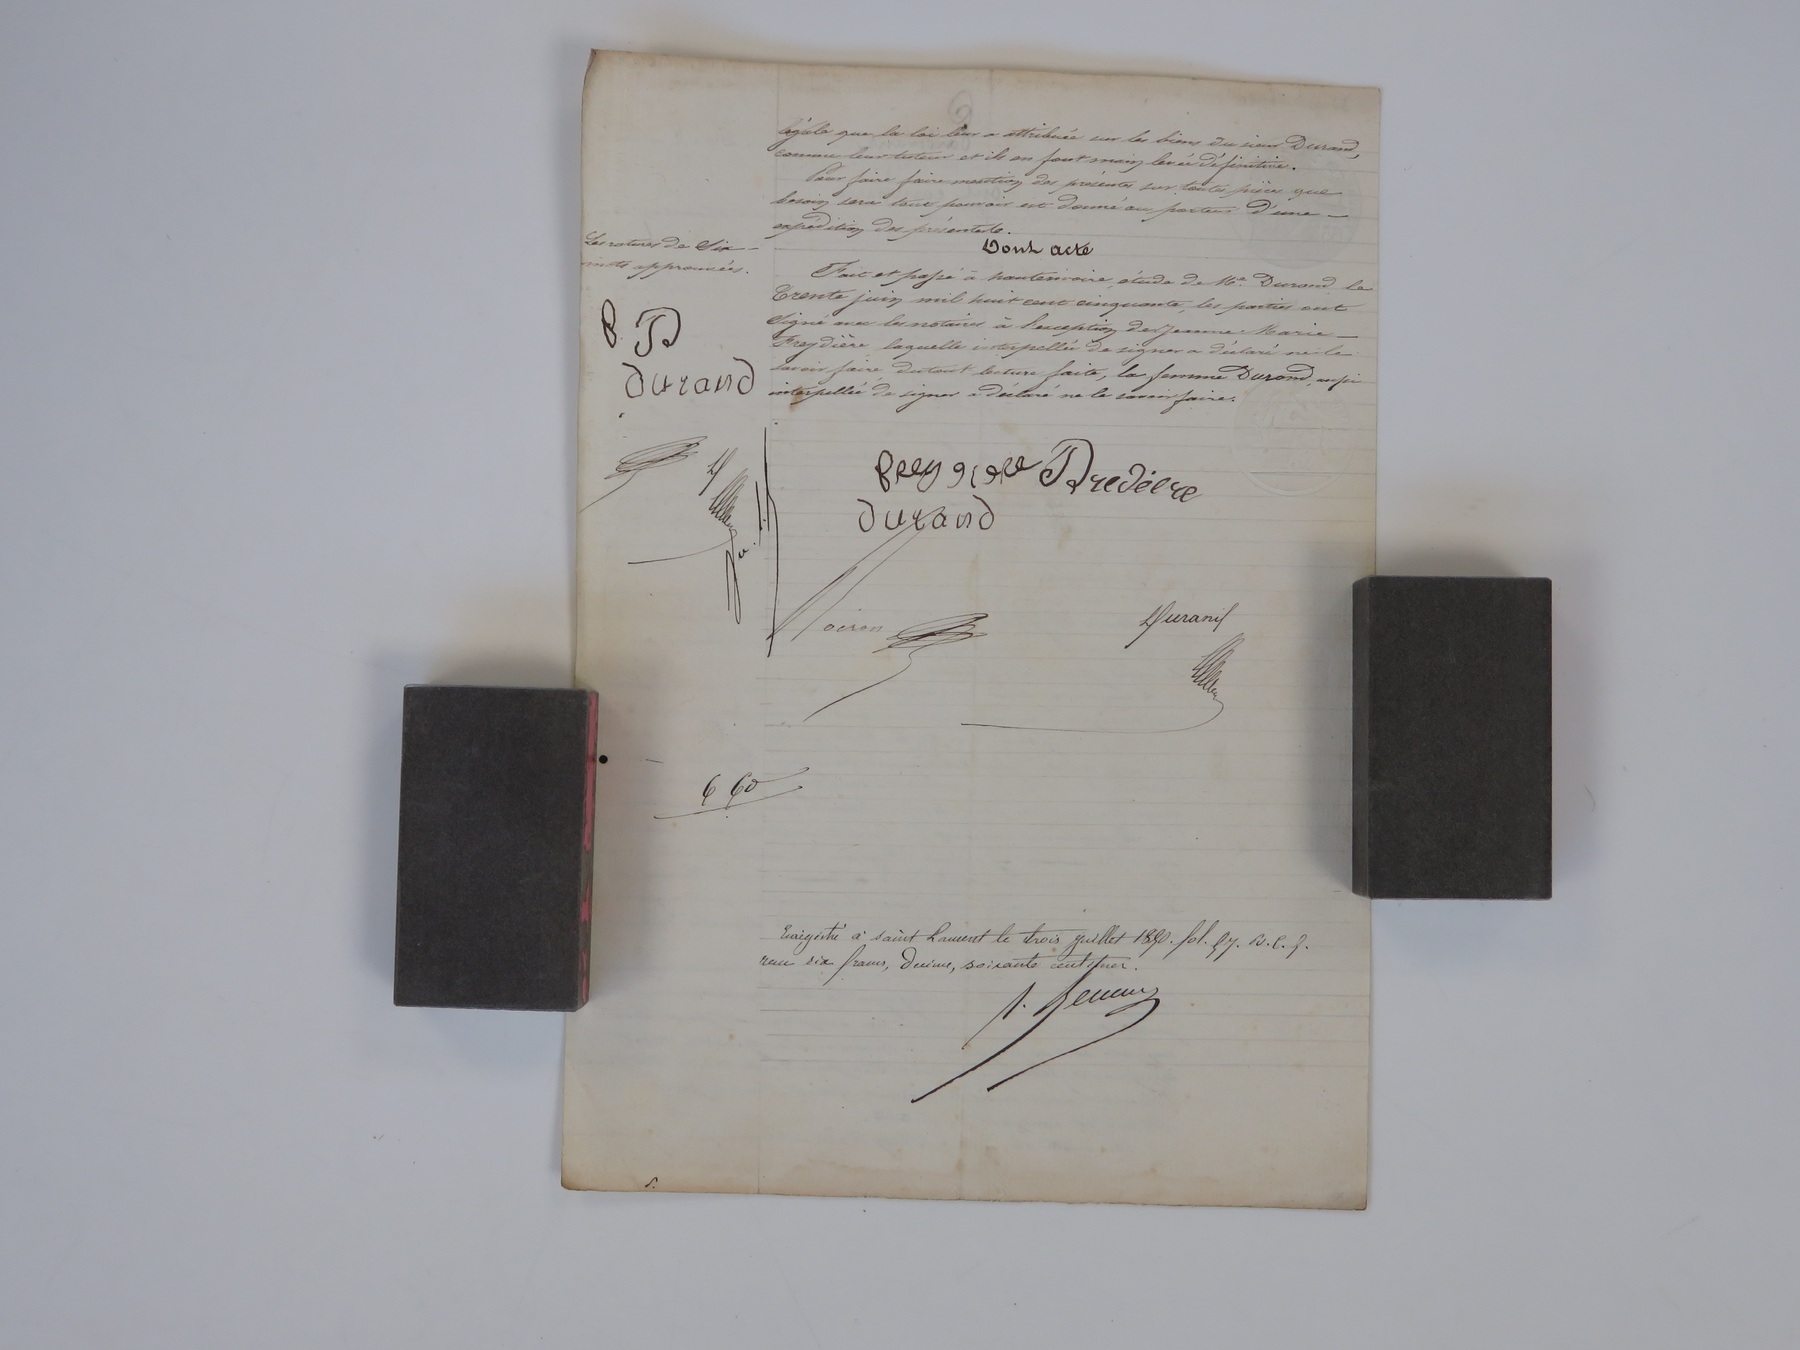 légale que la loi leur a attribuée sur les biens du sieur Durand,
comme leur tuteur et ils en font main levée définitive.
Pour faire faire mention des présentes sur toutes pièces que
besoin sera tout pouvoir est donné au porteur d'une
expédition des présentes.
Dont acte
Fait et passé à hauterivoire, étude de Me. Durand le
Trente juin mil huit cent cinquante, les parties ont
Signé avec les notaires à l'exception de Jeanne Marie
Freydière laquelle interpellée de signer a déclaré ne le
savoir faire dutout lecture faite, la femme Durand, aussi
interpellée de signer a déclaré ne le savoir faire.
Les ratures de Six
mots approuvées.
f. D
Durand
freydiere Fredière
Durand
Noiron
Durand
6 60
Enregistré à saint Laurent le trois juillet 1850. fol. 97. R. C. 7.
reçu six francs, Decime, soixante centimes.